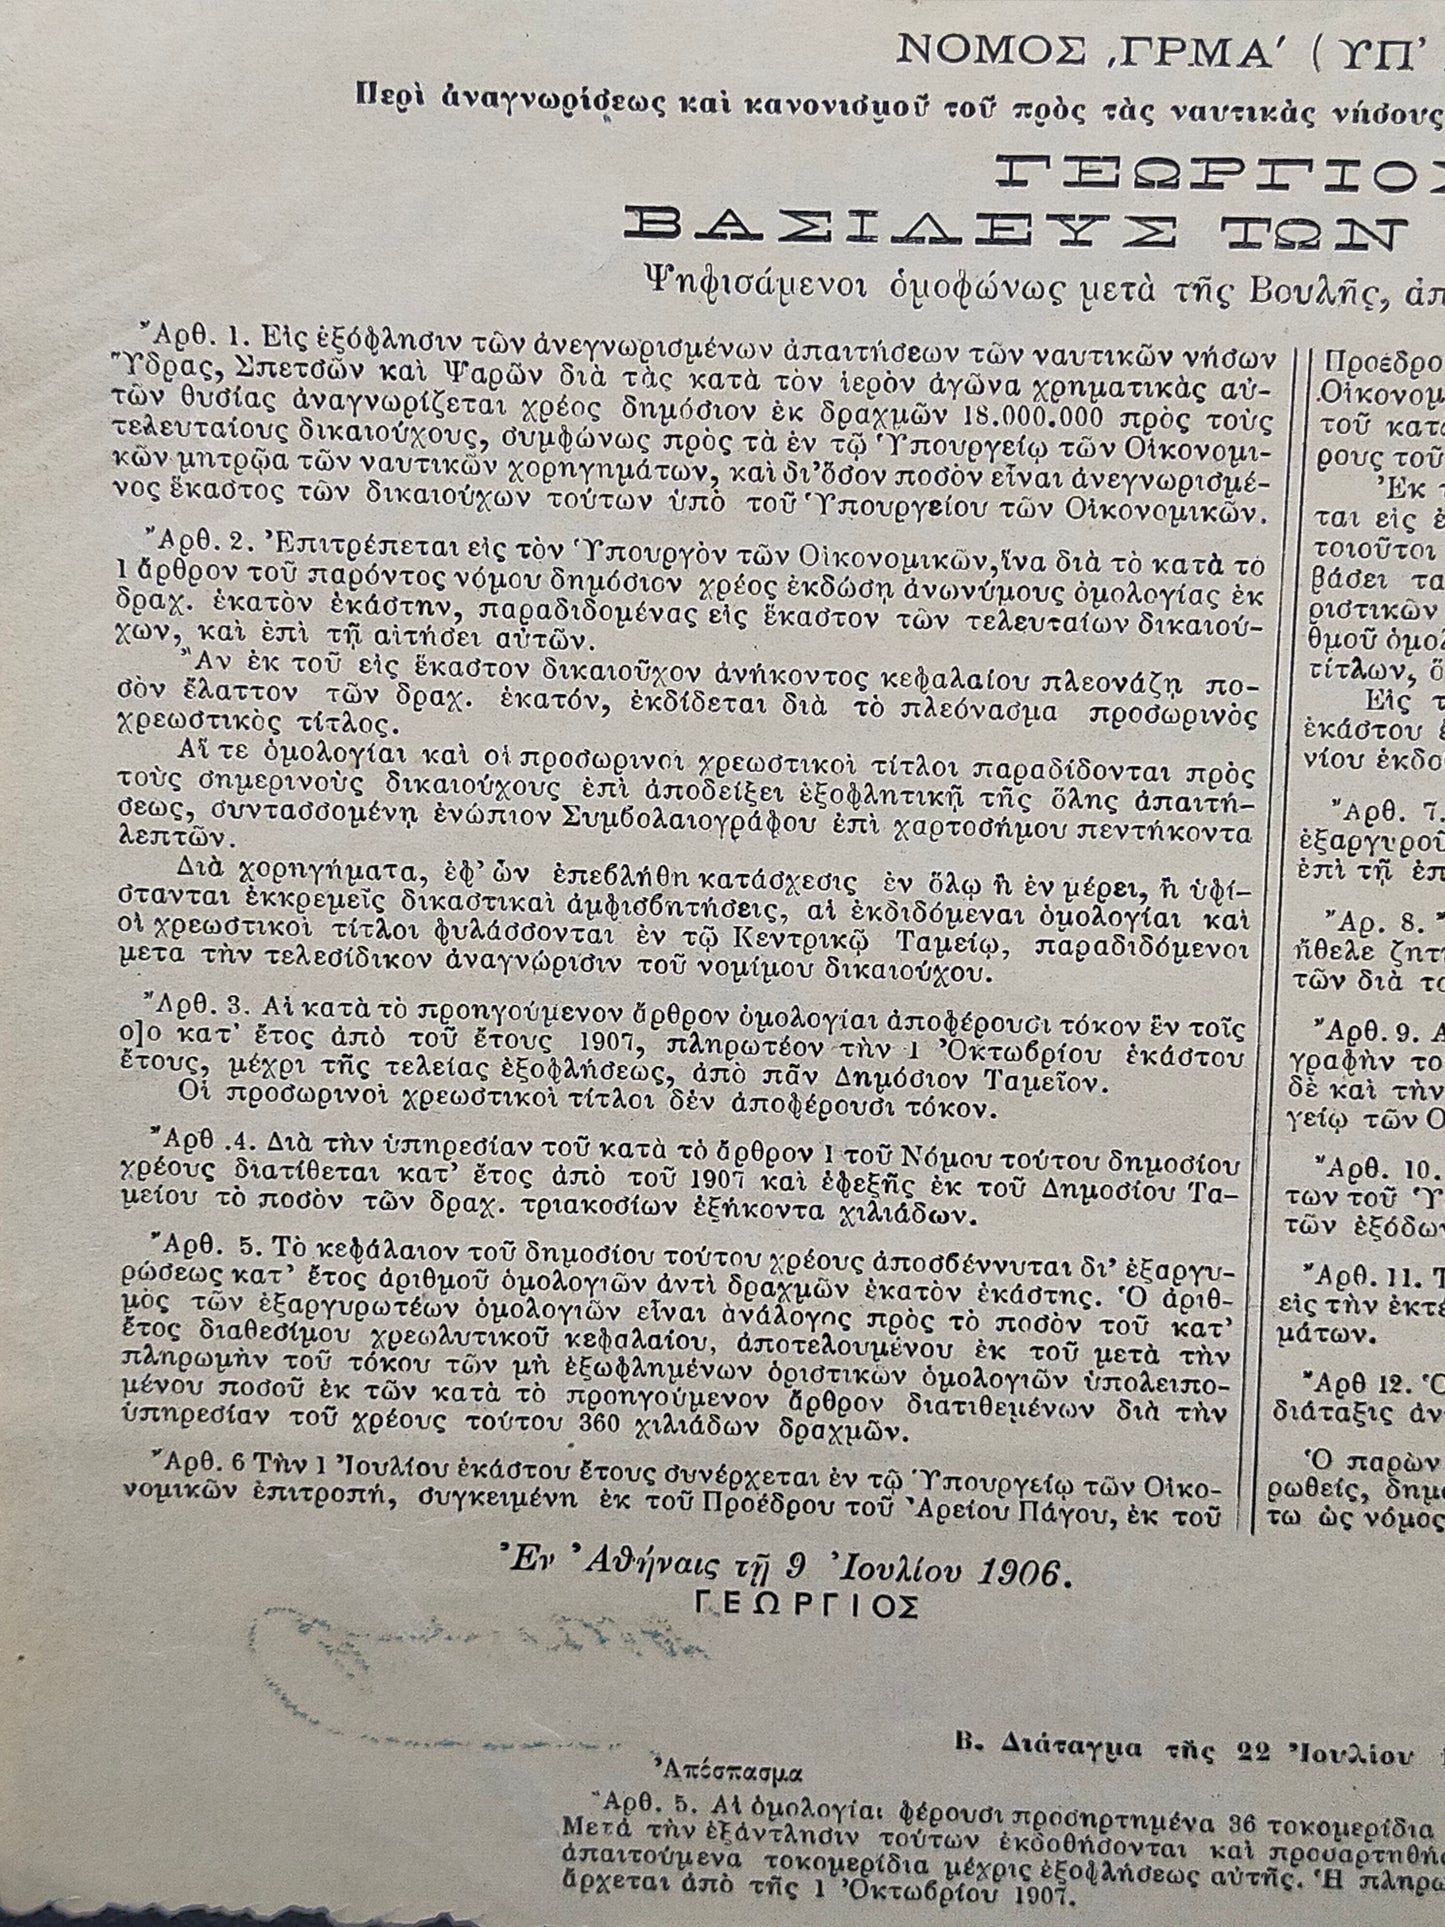 ΝΟΜΟΣ ͵ΓΡΜΑ′ (ΥΠ’
Περὶ ἀναγνωρίσεως καὶ κανονισμοῦ τοῦ πρὸς τὰς ναυτικὰς νήσους
ΓΕΩΡΓΙΟΣ
ΒΑΣΙΛΕΥΣ ΤΩΝ
Ψηφισάμενοι ὁμοφώνως μετὰ τῆς Βουλῆς, ἀπ
Ἄρθ. 1. Εἰς ἐξόφλησιν τῶν ἀνεγνωρισμένων ἀπαιτήσεων τῶν ναυτικῶν νήσων
Ὕδρας, Σπετσῶν καὶ Ψαρῶν διὰ τὰς κατὰ τὸν ἱερὸν ἀγῶνα χρηματικὰς αὐ-
τῶν θυσίας ἀναγνωρίζεται χρέος δημόσιον ἐκ δραχμῶν 18.000.000 πρὸς τοὺς
τελευταίους δικαιούχους, συμφώνως πρὸς τὰ ἐν τῷ Ὑπουργείῳ τῶν Οἰκονομι-
κῶν μητρῷα τῶν ναυτικῶν χορηγημάτων, καὶ δι’ ὅσον ποσὸν εἶναι ἀνεγνωρισμέ-
νος ἕκαστος τῶν δικαιούχων τούτων ὑπὸ τοῦ Ὑπουργείου τῶν Οἰκονομικῶν.
Ἄρθ. 2. Ἐπιτρέπεται εἰς τὸν Ὑπουργὸν τῶν Οἰκονομικῶν, ἵνα διὰ τὸ κατὰ τὸ
1 ἄρθρον τοῦ παρόντος νόμου δημόσιον χρέος ἐκδώσῃ ἀνωνύμους ὁμολογίας ἐκ
δραχ. ἑκατὸν ἑκάστην, παραδιδομένας εἰς ἕκαστον τῶν τελευταίων δικαιού-
χων, καὶ ἐπὶ τῇ αἰτήσει αὐτῶν.
Ἂν ἐκ τοῦ εἰς ἕκαστον δικαιοῦχον ἀνήκοντος κεφαλαίου πλεονάζῃ πο-
σὸν ἔλαττον τῶν δραχ. ἑκατόν, ἐκδίδεται διὰ τὸ πλεόνασμα προσωρινὸς
χρεωστικὸς τίτλος.
Αἵ τε ὁμολογίαι καὶ οἱ προσωρινοὶ χρεωστικοὶ τίτλοι παραδίδονται πρὸς
τοὺς σημερινοὺς δικαιούχους ἐπὶ ἀποδείξει ἐξοφλητικῇ τῆς ὅλης ἀπαιτή-
σεως, συντασσομένῃ ἐνώπιον Συμβολαιογράφου ἐπὶ χαρτοσήμου πεντήκοντα
λεπτῶν.
Διὰ χορηγήματα, ἐφ’ ὧν ἐπεβλήθη κατάσχεσις ἐν ὅλῳ ἢ ἐν μέρει, ἢ ὑφί-
στανται ἐκκρεμεῖς δικαστικαὶ ἀμφισβητήσεις, αἱ ἐκδιδόμεναι ὁμολογίαι καὶ
οἱ χρεωστικοὶ τίτλοι φυλάσσονται ἐν τῷ Κεντρικῷ Ταμείῳ, παραδιδόμενοι
μετα τὴν τελεσίδικον ἀναγνώρισιν τοῦ νομίμου δικαιούχου.
Ἄρθ. 3. Αἱ κατὰ τὸ προηγούμενον ἄρθρον ὁμολογίαι ἀποφέρουσι τόκον ἓν τοῖς
ο]ο κατ’ ἔτος ἀπὸ τοῦ ἔτους 1907, πληρωτέον τὴν 1 Ὀκτωβρίου ἑκάστου
ἔτους, μέχρι τῆς τελείας ἐξοφλήσεως, ἀπὸ πᾶν Δημόσιον Ταμεῖον.
Οἱ προσωρινοὶ χρεωστικοὶ τίτλοι δὲν ἀποφέρουσι τόκον.
Ἄρθ .4. Διὰ τὴν ὑπηρεσίαν τοῦ κατὰ τὸ ἄρθρον 1 τοῦ Νόμου τούτου δημοσίου
χρέους διατίθεται κατ’ ἔτος ἀπὸ τοῦ 1907 καὶ ἐφεξῆς ἐκ τοῦ Δημοσίου Τα-
μείου τὸ ποσὸν τῶν δραχ. τριακοσίων ἑξήκοντα χιλιάδων.
Ἄρθ. 5. Τὸ κεφάλαιον τοῦ δημοσίου τούτου χρέους ἀποσβέννυται δι’ ἐξαργυ-
ρώσεως κατ’ ἔτος ἀριθμοῦ ὁμολογιῶν ἀντὶ δραχμῶν ἑκατὸν ἑκάστης. Ὁ ἀριθ-
μὸς τῶν ἐξαργυρωτέων ὁμολογιῶν εἶναι ἀνάλογος πρὸς τὸ ποσὸν τοῦ κατ’
ἔτος διαθεσίμου χρεωλυτικοῦ κεφαλαίου, ἀποτελουμένου ἐκ τοῦ μετὰ τὴν
πληρωμὴν τοῦ τόκου τῶν μὴ ἐξωφλημένων ὁριστικῶν ὁμολογιῶν ὑπολειπο-
μένου ποσοῦ ἐκ τῶν κατὰ τὸ προηγούμενον ἄρθρον διατιθεμένων διὰ τὴν
ὑπηρεσίαν τοῦ χρέους τούτου 360 χιλιάδων δραχμῶν.
Ἄρθ. 6 Τὴν 1 Ἰουλίου ἑκάστου ἔτους συνέρχεται ἐν τῷ Ὑπουργείῳ τῶν Οἰκο-
νομικῶν ἐπιτροπή, συγκειμένη ἐκ τοῦ Προέδρου τοῦ Ἀρείου Πάγου, ἐκ τοῦ
Προέδρο
Οἰκονομ
τοῦ κατ
ρους τοῦ
Ἐκ τ
ται εἰς ἐ
τοιοῦτοι
βάσει τα
ριστικῶν
θμοῦ ὁμολ
τίτλων, ὅ
Εἰς τ
ἑκάστου
νίου ἐκδο
Ἄρθ. 7.
ἐξαργυροῦ
ἐπὶ τῇ ἐπ
Ἄρ. 8.
ἤθελε ζητ
τῶν διὰ το
Ἄρθ. 9. Α
γραφὴν το
δὲ καὶ τὴν
γείῳ τῶν Ο
Ἄρθ. 10.
των τοῦ Ὑ
τῶν ἐξόδων
Ἄρθ. 11. Τ
εἰς τὴν ἐκτέ
μάτων.
Ἄρθ 12. Ὁ
διάταξις ἀν
Ὁ παρὼν
ρωθείς, δημο
τω ὡς νόμος
Ἐν Ἀθήναις τῇ 9 Ἰουλίου 1906.
ΓΕΩΡΓΙΟΣ
Β. Διάταγμα τῆς 22 Ἰουλίου
Ἀπόσπασμα
Ἄρθ. 5. Αἱ ὁμολογίαι φέρουσι προσηρτημένα 36 τοκομερίδια
Μετὰ τὴν ἐξάντλησιν τούτων ἐκδοθήσονται καὶ προσαρτηθήσ
ἀπαιτούμενα τοκομερίδια μέχρις ἐξοφλήσεως αὐτῆς. Ἡ πληρω
ἄρχεται ἀπὸ τῆς 1 Ὀκτωβρίου 1907.